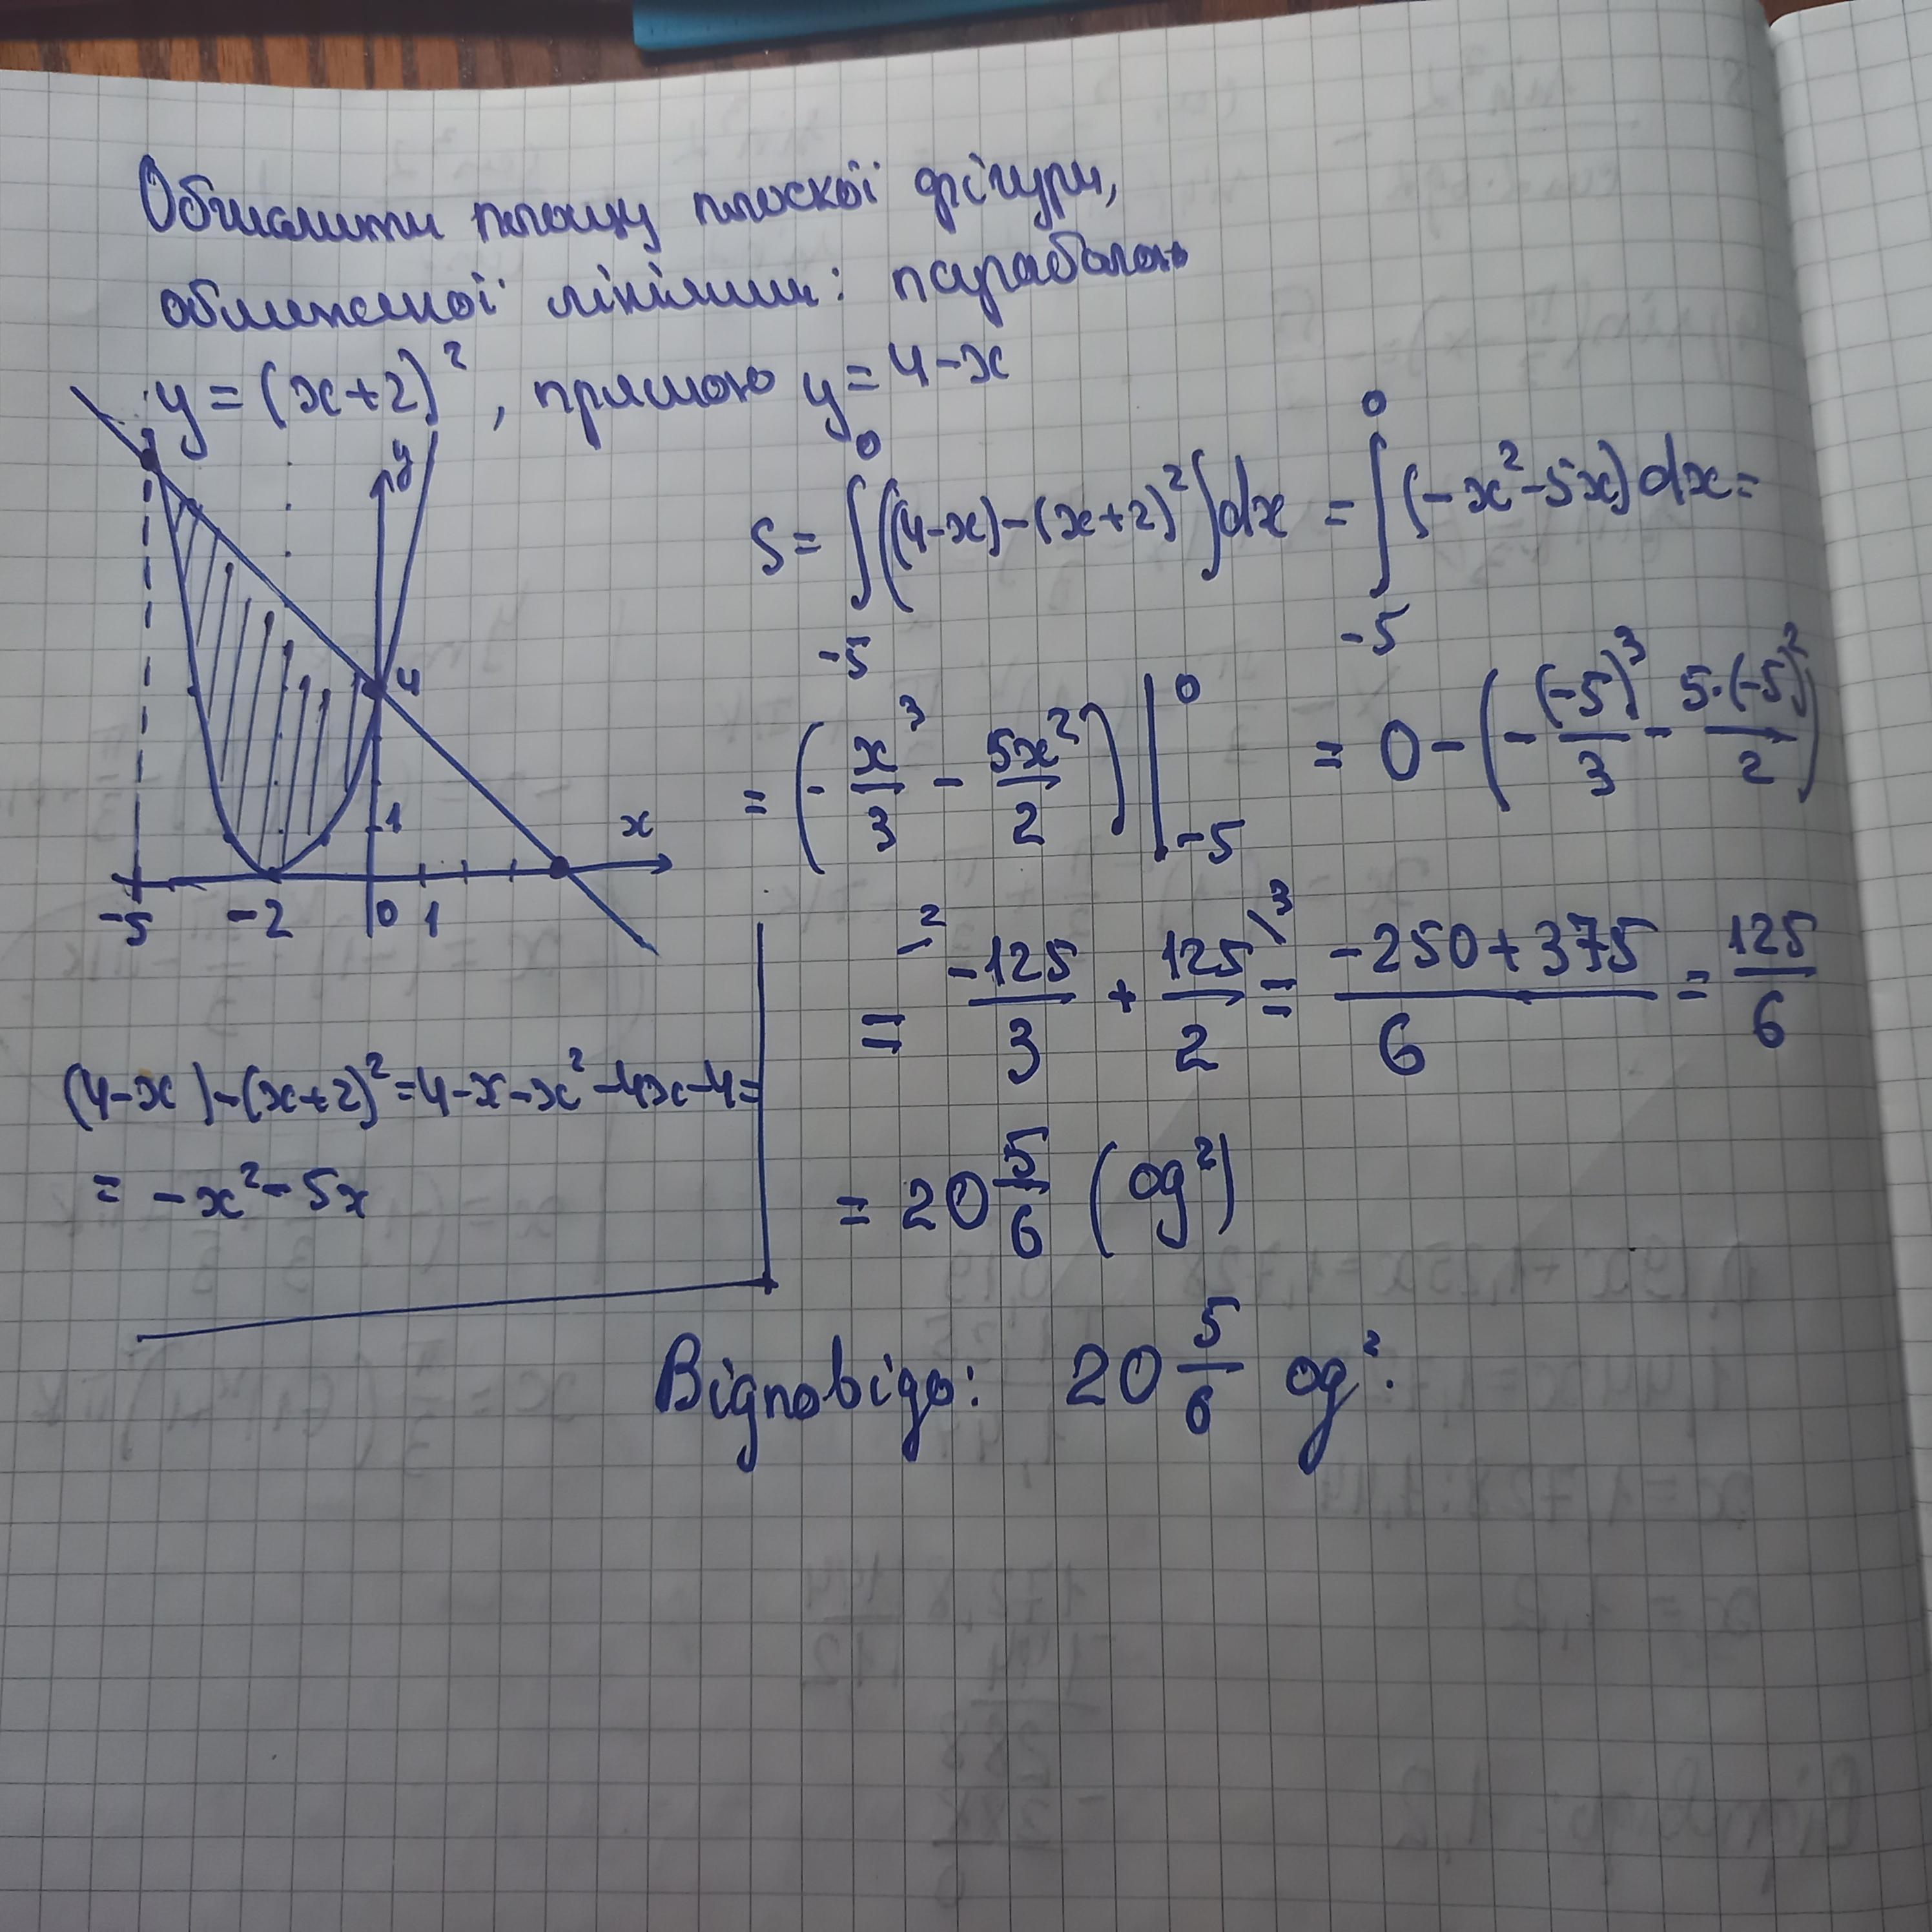 Обчислити площу плоскої фігури,
обмеженої лініями: параболою
y = (x+2)², прямою y = 4-x
y
4
1
x
-5 -2 0 1
S = ∫₋₅⁰ ((4-x)-(x+2)²)dx = ∫₋₅⁰ (-x²-5x)dx =
= (-x³/3 - 5x²/2) |₋₅⁰ = 0-(-(-5)³/3 - 5·(-5)²/2)
= -125/3 \2 + 125/2 \3 = (-250+375)/6 = 125/6
= 20 5/6 (од²)
(4-x)-(x+2)²=4-x-x²-4x-4=
= -x²-5x
Відповідь: 20 5/6 од².